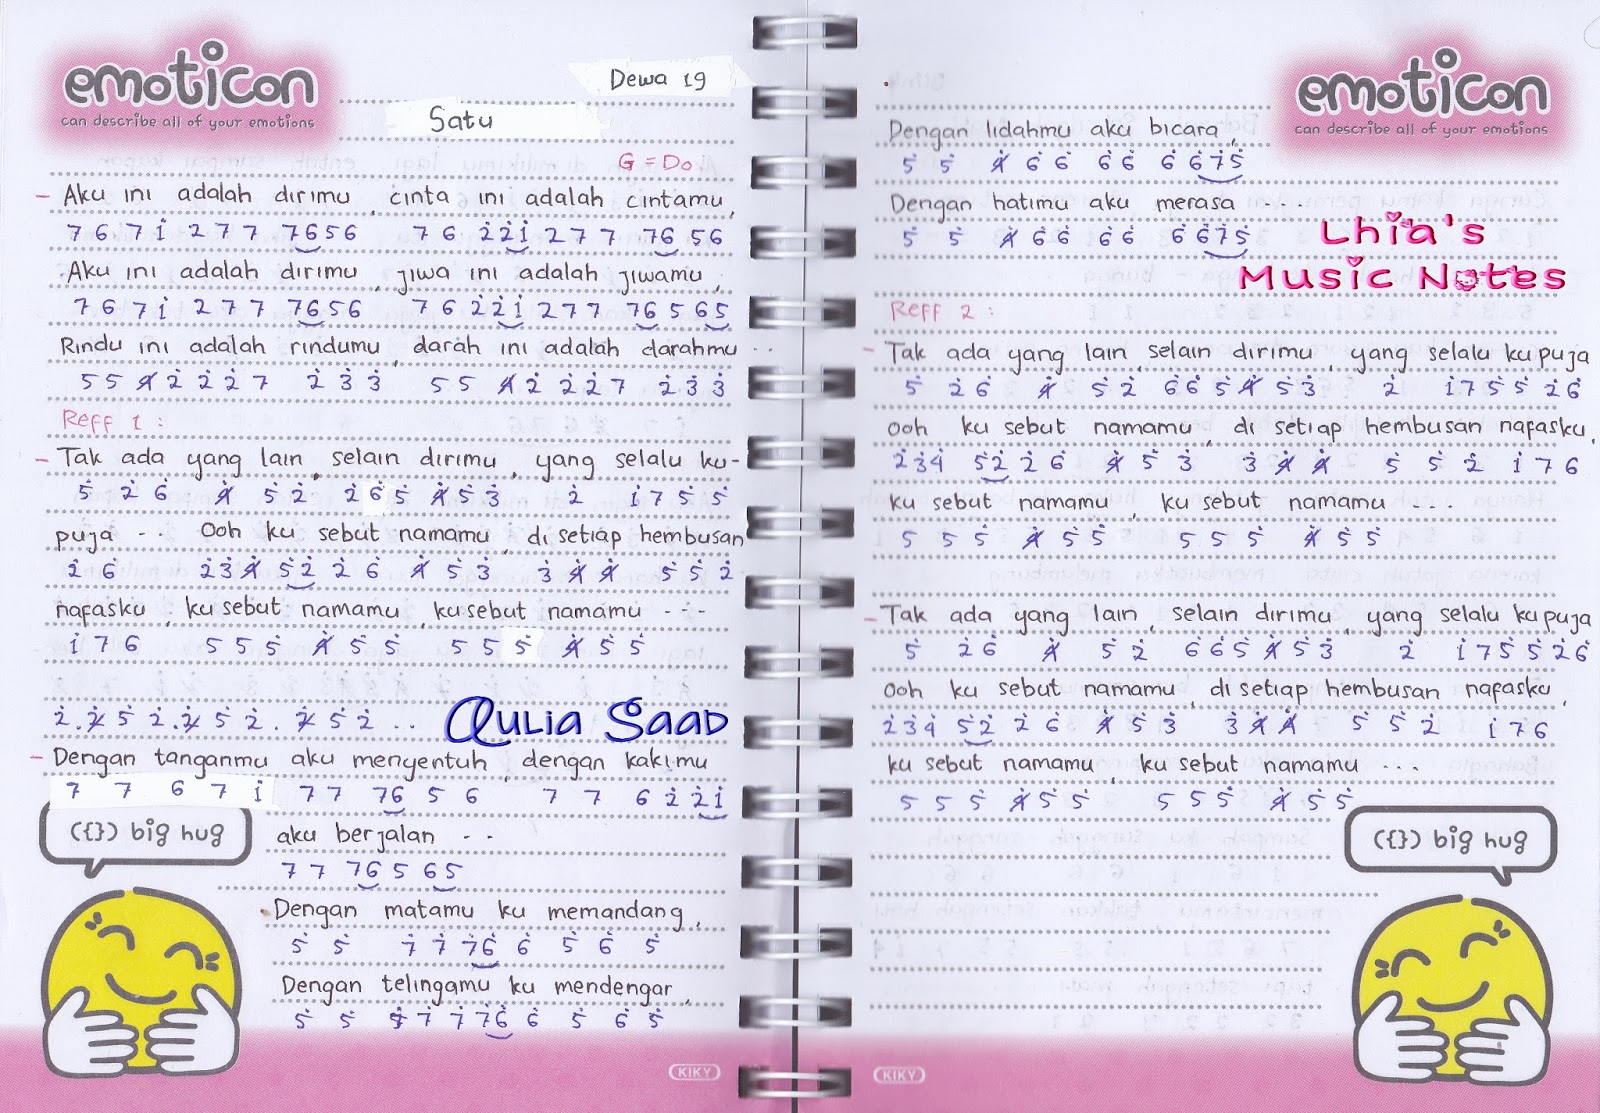 emoticon
can describe all of your emotions
Dewa 19
Satu
G = Do
- Aku ini adalah dirimu, cinta ini adalah cintamu,
7 6 7 1 2 7 7 7 6 5 6 7 6 2 2 1 2 7 7 7 6 5 6
Aku ini adalah dirimu, jiwa ini adalah jiwamu,
7 6 7 1 2 7 7 7 6 5 6 7 6 2 2 1 2 7 7 7 6 5 6 5
Rindu ini adalah rindumu, darah ini adalah darahmu ..
5 5 4 2 2 2 7 2 3 3 5 5 4 2 2 2 7 2 3 3
Reff 1 :
- Tak ada yang lain, selain dirimu, yang selalu ku-
5 2 6 4 5 2 2 6 5 4 5 3 2 1 7 5 5
puja .. Ooh ku sebut namamu, di setiap hembusan
2 6 2 3 4 5 2 2 6 4 5 3 3 4 4 5 5 2
nafasku, ku sebut namamu, ku sebut namamu ...
1 7 6 5 5 5 4 5 5 5 5 5 4 5 5
2 . 2 5 2 . 2 5 2 . 2 5 2 ..
Qulia Saad
- Dengan tanganmu aku menyentuh, dengan kakimu
7 7 6 7 1 7 7 7 6 5 6 7 7 6 2 2 1
aku berjalan ..
7 7 7 6 5 6 5
Dengan matamu ku memandang,
5 5 7 7 7 6 6 5 6 5
Dengan telingamu ku mendengar,
5 5 7 7 7 7 6 6 5 6 5
({}) big hug
KIKY
emoticon
can describe all of your emotions
Dengan lidahmu aku bicara,
5 5 4 6 6 6 6 6 6 7 5
Dengan hatimu aku merasa ....
5 5 4 6 6 6 6 6 6 7 5
Lhia's
Music Notes
Reff 2 :
- Tak ada yang lain, selain dirimu, yang selalu ku puja
5 2 6 4 5 2 6 6 5 4 5 3 2 1 7 5 5 2 6
Ooh ku sebut namamu, di setiap hembusan nafasku,
2 3 4 5 2 2 6 4 5 3 3 4 4 5 5 2 1 7 6
ku sebut namamu, ku sebut namamu ...
5 5 5 4 5 5 5 5 5 4 5 5
- Tak ada yang lain, selain dirimu, yang selalu ku puja
5 2 6 4 5 2 6 6 5 4 5 3 2 1 7 5 5 2 6
Ooh ku sebut namamu, di setiap hembusan nafasku,
2 3 4 5 2 2 6 4 5 3 3 4 4 5 5 2 1 7 6
ku sebut namamu, ku sebut namamu ...
5 5 5 4 5 5 5 5 5 4 5 5
({}) big hug
KIKY